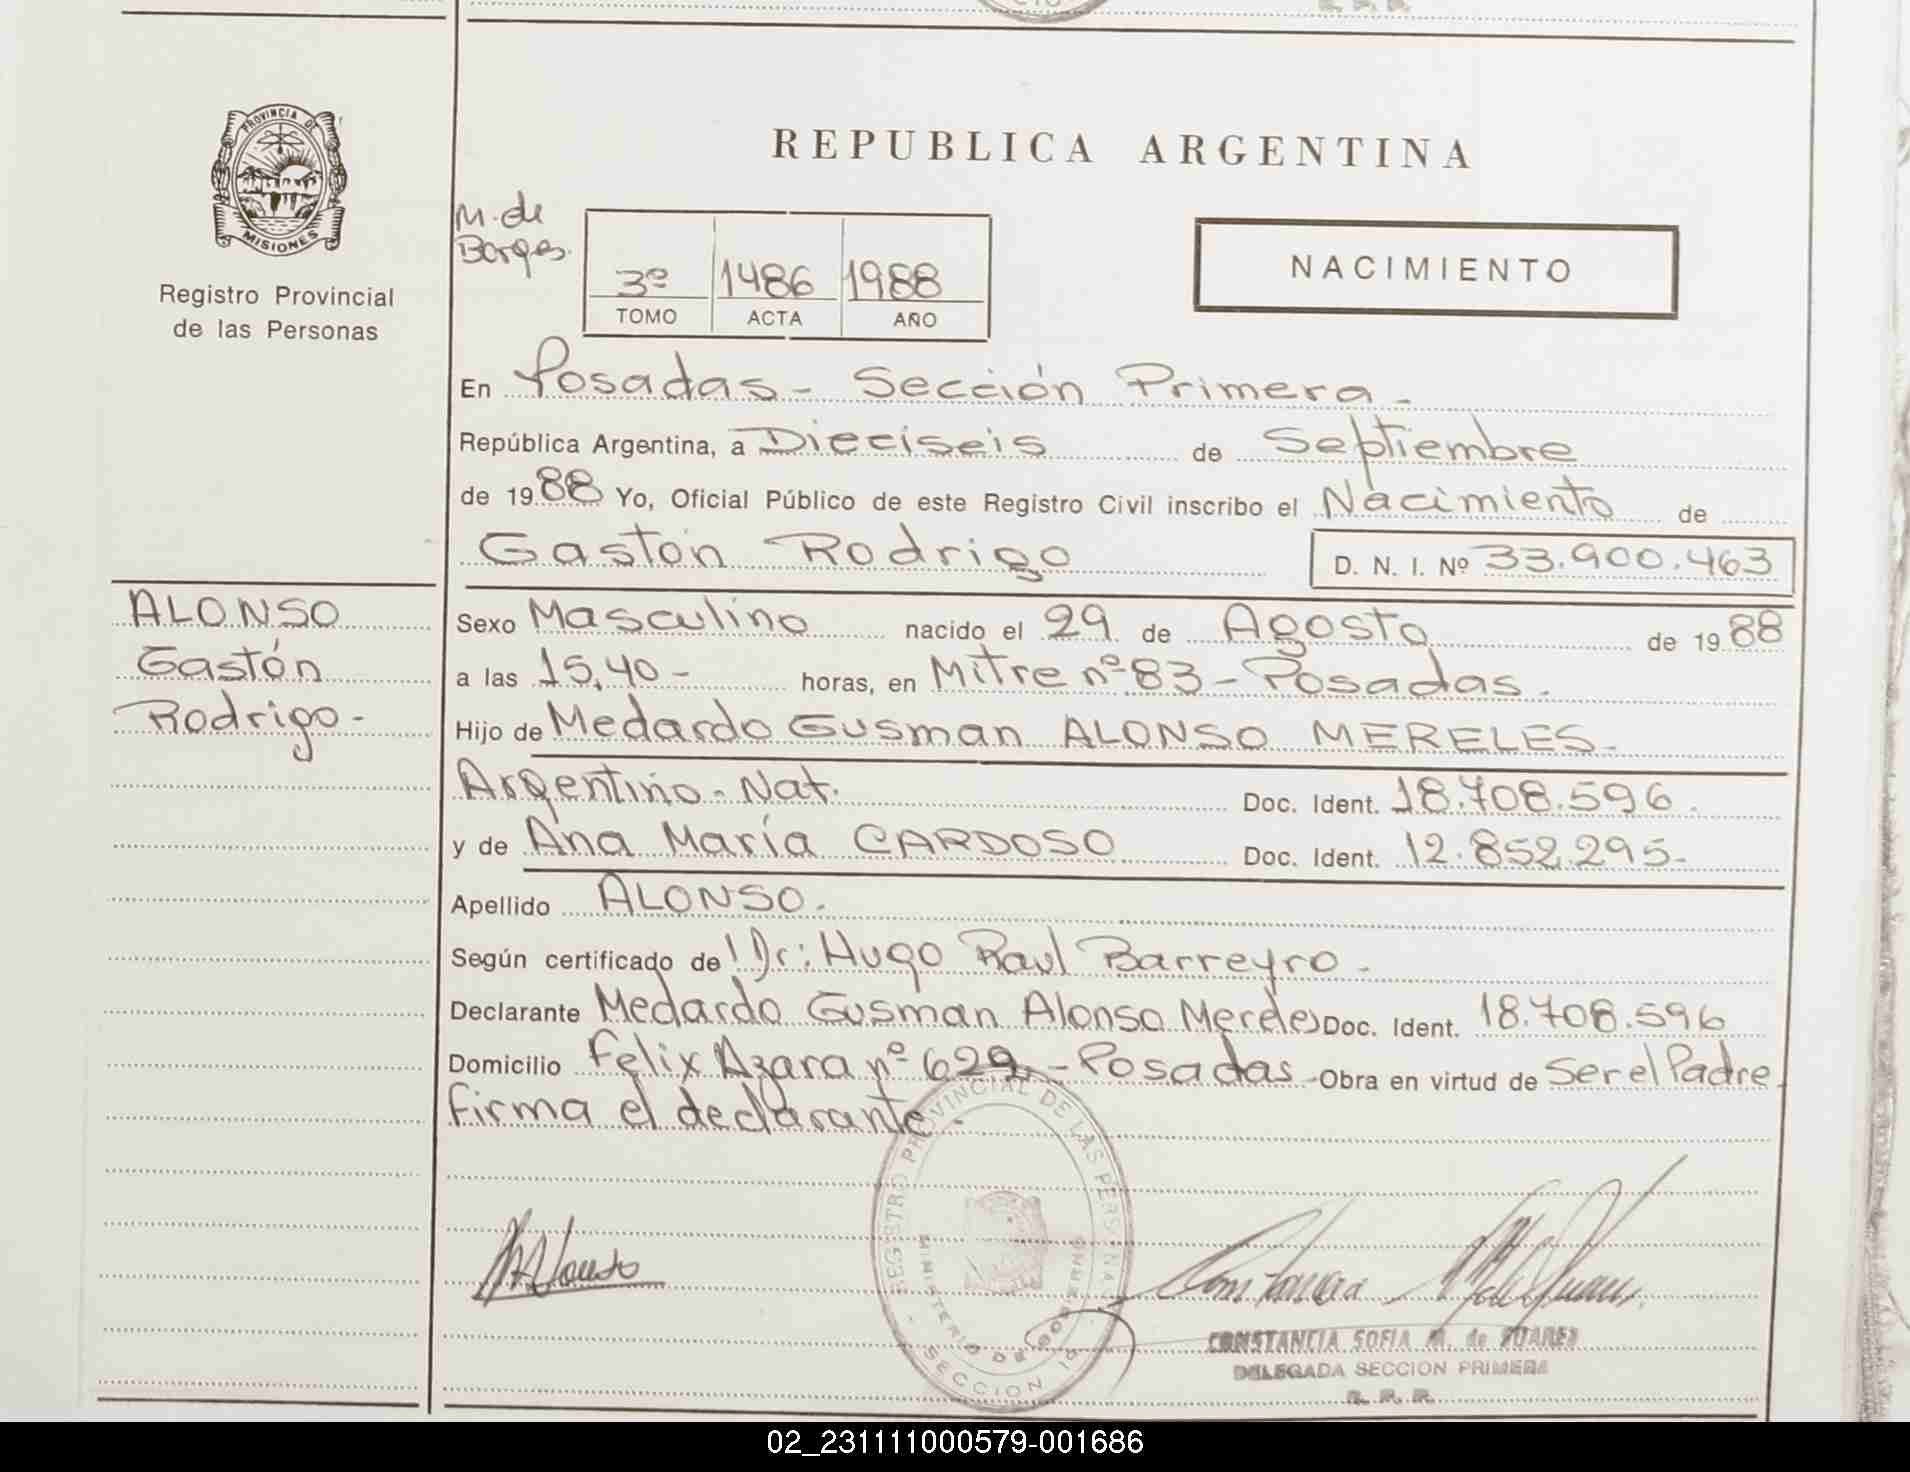 PROVINCIA DE
MISIONES
Registro Provincial
de las Personas
REPUBLICA ARGENTINA
M. de
Borges.
3º 1486 1988
TOMO ACTA AÑO
NACIMIENTO
En Posadas - Sección Primera -
República Argentina, a Dieciseis de Septiembre
de 1988 Yo, Oficial Público de este Registro Civil inscribo el Nacimiento de
Gastón Rodrigo D. N. I. Nº 33.900.463
ALONSO
Gastón
Rodrigo -
Sexo Masculino nacido el 29 de Agosto de 1988
a las 15,40 - horas, en Mitre nº 83 - Posadas.
Hijo de Medardo Gusman ALONSO MERELES -
Argentino - Nat. Doc. Ident. 18.708.596.
y de Ana María CARDOSO Doc. Ident. 12.852.295-
Apellido ALONSO.
Según certificado de Dr: Hugo Raul Barreyro.
Declarante Medardo Gusman Alonso Mereles Doc. Ident. 18.708.596
Domicilio Felix Azara nº 629 - Posadas - Obra en virtud de Ser el Padre
Firma el declarante.
REGISTRO PROVINCIAL DE LAS PERSONAS
MINISTERIO DE GOBIERNO
SECCION 1º
CONSTANCIA SOFIA M. de SUAREZ
DELEGADA SECCION PRIMERA
R. P. P.
02_231111000579-001686